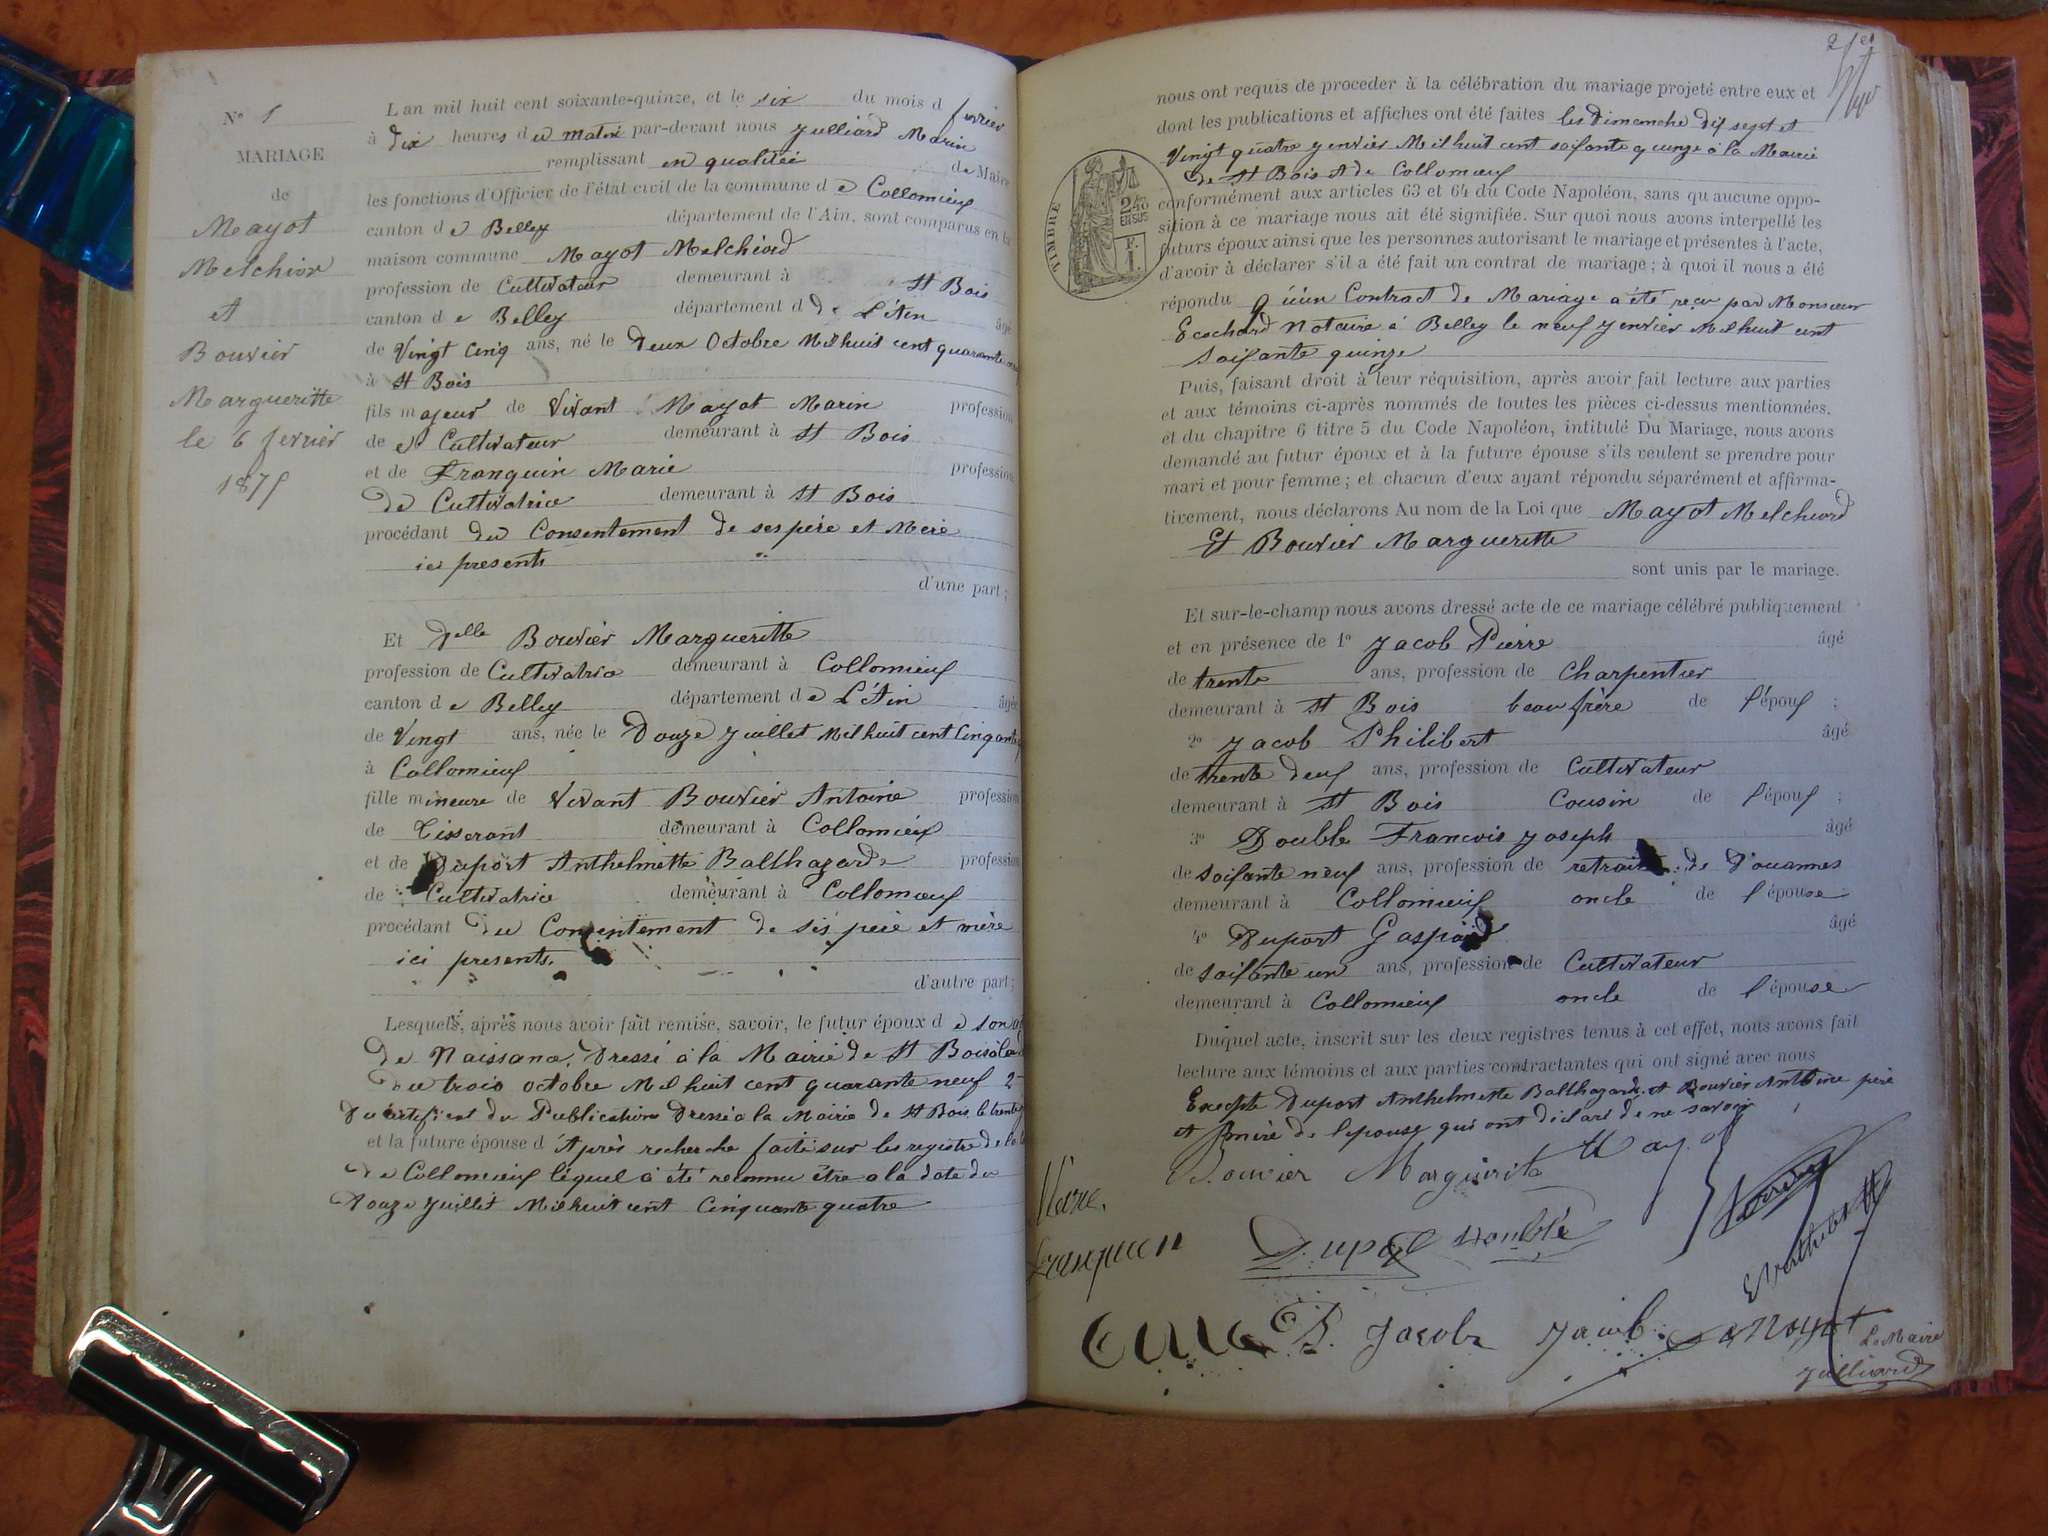 N° 1
MARIAGE
de
Mayot
Melchior
et
Bouvier
Margueritte
le 6 fevrier
1875
L an mil huit cent soixante-quinze, et le six du mois d fevrier
à dix heures du matin par-devant nous Julliard Marin
remplissant en qualitée de Maire
les fonctions d'Officier de l'état civil de la commune d e Collomieux
canton d e Belley département de l'Ain, sont comparus en la
maison commune Mayot Melchiord
profession de Cultivateur demeurant à St Bois
canton d e Belley département d de L'Ain âgé
de Vingt cinq ans, né le Deux Octobre Mil huit cent quarante
à St Bois
fils majeur de Vivant Mayot Marin profession
de Cultivateur demeurant à St Bois
et de Franquin Marie profession
de Cultivatrice demeurant à St Bois
procédant du Consentement de ses père et Mère
ici presents
d'une part;
Et Delle Bouvier Margueritte
profession de Cultivatrice demeurant à Collomieux
canton d e Belley département d e L'Ain âgée
de Vingt ans, née le Douze Juillet Mil huit cent Cinquante
à Collomieux
fille mineure de Vivant Bouvier Antoine profession
de Tisserant demeurant à Collomieux
et de Duport Anthelmette Balthazarde profession
de Cultivatrice demeurant à Collomieux
procédant du Consentement de sès père et mère
ici presents.
d'autre part;
Lesquels, après nous avoir fait remise, savoir, le futur époux d e son
de Naissance, Dressé à la Mairie de St Bois
du trois octobre Mil huit cent quarante neuf 2
Du certificat du Publications Dressé à la Mairie de St Bois le trente
et la future épouse d Après recherche faite sur les registre de la
de Collomieux lequel à été reconnu être a la date du
Douze Juillet Mil huit cent Cinquante quatre
2
nous ont requis de procéder à la célébration du mariage projeté entre eux et
dont les publications et affiches ont été faites les Dimanche dix sept et
Vingt quatre Jenvier Mil huit cent soixante quinze à la Mairie
de St Bois et de Collomieux
conformément aux articles 63 et 64 du Code Napoléon, sans qu'aucune oppo-
sition à ce mariage nous ait été signifiée. Sur quoi nous avons interpellé les
futurs époux ainsi que les personnes autorisant le mariage et présentes à l'acte,
d'avoir à déclarer s'il a été fait un contrat de mariage; à quoi il nous a été
TIMBRE
2/10
EN SUS
F.
1.
répondu Qu'un Contract de Mariage a été reçu par Monsieur
Ecochard Notaire à Belley le neuf Jenvier Mil huit cent
soixante quinze
Puis, faisant droit à leur réquisition, après avoir fait lecture aux parties
et aux témoins ci-après nommés de toutes les pièces ci-dessus mentionnées,
et du chapitre 6 titre 5 du Code Napoléon, intitulé Du Mariage, nous avons
demandé au futur époux et à la future épouse s'ils veulent se prendre pour
mari et pour femme; et chacun d'eux ayant répondu séparément et affirma-
tivement, nous déclarons Au nom de la Loi que Mayot Melchiord
Et Bouvier Margueritte
sont unis par le mariage.
Et sur-le-champ nous avons dressé acte de ce mariage célébré publiquement
et en présence de 1° Jacob Pierre âgé
de trente ans, profession de Charpentier
demeurant à St Bois beau frère de l'époux ;
2° Jacob Philibert âgé
de trente deux ans, profession de Cultivateur
demeurant à St Bois Cousin de l'époux ;
3° Double Francois Joseph âgé
de soixante neuf ans, profession de retraité de Douannes
demeurant à Collomieux oncle de l'épouse
4° Duport Gaspard âgé
de soixante un ans, profession de Cultivateur
demeurant à Collomieux oncle de l'épouse
Duquel acte, inscrit sur les deux registres tenus à cet effet, nous avons fait
lecture aux témoins et aux parties contractantes qui ont signé avec nous
Excepte Duport Anthelmette Balthazarde et Bouvier Anthoine père
et mère de lepouse qui ont déclaré de ne savoir
Bouvier Marguerite Mayot
Marie
Franquin
Duport Double
P. Jacob Jacob Mayot
Le Maire
Julliard